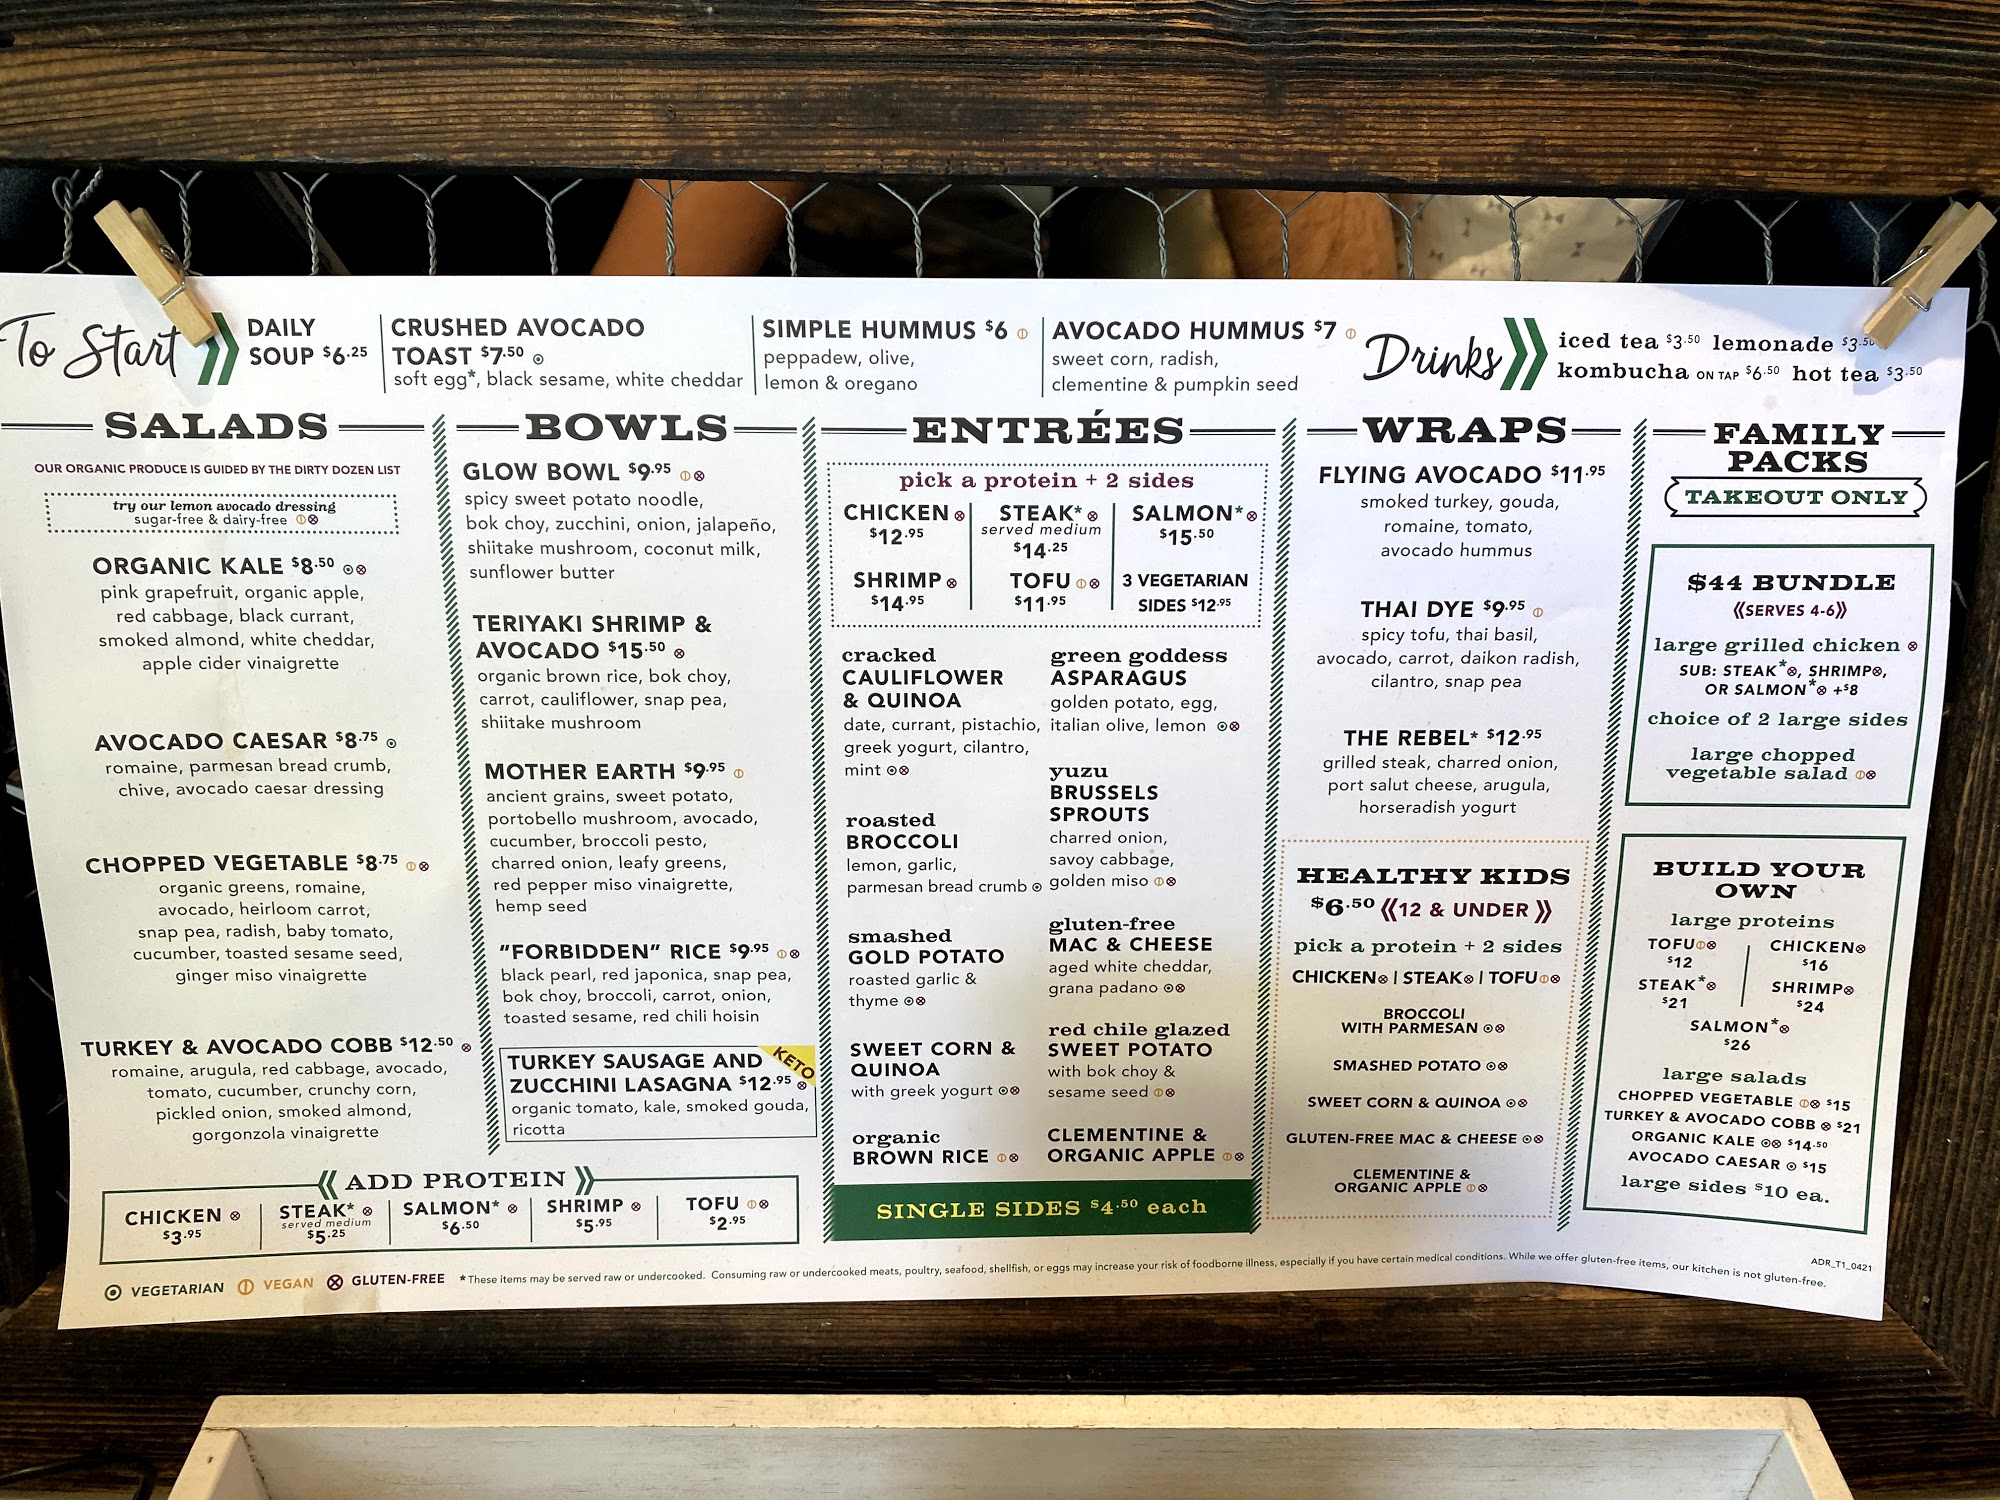 To Start
DAILY
SOUP $6.25
CRUSHED AVOCADO
TOAST $7.50
soft egg*, black sesame, white cheddar
SIMPLE HUMMUS $6
peppadew, olive,
lemon & oregano
AVOCADO HUMMUS $7
sweet corn, radish,
clementine & pumpkin seed
Drinks
iced tea $3.50 lemonade $3.50
kombucha ON TAP $6.50 hot tea $3.50
SALADS
OUR ORGANIC PRODUCE IS GUIDED BY THE DIRTY DOZEN LIST
try our lemon avocado dressing
sugar-free & dairy-free
ORGANIC KALE $8.50
pink grapefruit, organic apple,
red cabbage, black currant,
smoked almond, white cheddar,
apple cider vinaigrette
AVOCADO CAESAR $8.75
romaine, parmesan bread crumb,
chive, avocado caesar dressing
CHOPPED VEGETABLE $8.75
organic greens, romaine,
avocado, heirloom carrot,
snap pea, radish, baby tomato,
cucumber, toasted sesame seed,
ginger miso vinaigrette
TURKEY & AVOCADO COBB $12.50
romaine, arugula, red cabbage, avocado,
tomato, cucumber, crunchy corn,
pickled onion, smoked almond,
gorgonzola vinaigrette
BOWLS
GLOW BOWL $9.95
spicy sweet potato noodle,
bok choy, zucchini, onion, jalapeño,
shiitake mushroom, coconut milk,
sunflower butter
TERIYAKI SHRIMP &
AVOCADO $15.50
organic brown rice, bok choy,
carrot, cauliflower, snap pea,
shiitake mushroom
MOTHER EARTH $9.95
ancient grains, sweet potato,
portobello mushroom, avocado,
cucumber, broccoli pesto,
charred onion, leafy greens,
red pepper miso vinaigrette,
hemp seed
"FORBIDDEN" RICE $9.95
black pearl, red japonica, snap pea,
bok choy, broccoli, carrot, onion,
toasted sesame, red chili hoisin
TURKEY SAUSAGE AND
ZUCCHINI LASAGNA $12.95
KETO
organic tomato, kale, smoked gouda,
ricotta
ADD PROTEIN
CHICKEN
$3.95
STEAK*
served medium
$5.25
SALMON*
$6.50
SHRIMP
$5.95
TOFU
$2.95
ENTRÉES
pick a protein + 2 sides
CHICKEN
$12.95
STEAK*
served medium
$14.25
SALMON*
$15.50
SHRIMP
$14.95
TOFU
$11.95
3 VEGETARIAN
SIDES $12.95
cracked
CAULIFLOWER
& QUINOA
date, currant, pistachio,
greek yogurt, cilantro,
mint
roasted
BROCCOLI
lemon, garlic,
parmesan bread crumb
smashed
GOLD POTATO
roasted garlic &
thyme
SWEET CORN &
QUINOA
with greek yogurt
organic
BROWN RICE
green goddess
ASPARAGUS
golden potato, egg,
italian olive, lemon
yuzu
BRUSSELS
SPROUTS
charred onion,
savoy cabbage,
golden miso
gluten-free
MAC & CHEESE
aged white cheddar,
grana padano
red chile glazed
SWEET POTATO
with bok choy &
sesame seed
CLEMENTINE &
ORGANIC APPLE
SINGLE SIDES $4.50 each
WRAPS
FLYING AVOCADO $11.95
smoked turkey, gouda,
romaine, tomato,
avocado hummus
THAI DYE $9.95
spicy tofu, thai basil,
avocado, carrot, daikon radish,
cilantro, snap pea
THE REBEL* $12.95
grilled steak, charred onion,
port salut cheese, arugula,
horseradish yogurt
HEALTHY KIDS
$6.50 《12 & UNDER》
pick a protein + 2 sides
CHICKEN | STEAK | TOFU
BROCCOLI
WITH PARMESAN
SMASHED POTATO
SWEET CORN & QUINOA
GLUTEN-FREE MAC & CHEESE
CLEMENTINE &
ORGANIC APPLE
FAMILY
PACKS
TAKEOUT ONLY
$44 BUNDLE
《SERVES 4-6》
large grilled chicken
SUB: STEAK*, SHRIMP,
OR SALMON* +$8
choice of 2 large sides
large chopped
vegetable salad
BUILD YOUR
OWN
large proteins
TOFU
$12
CHICKEN
$16
STEAK*
$21
SHRIMP
$24
SALMON*
$26
large salads
CHOPPED VEGETABLE $15
TURKEY & AVOCADO COBB $21
ORGANIC KALE $14.50
AVOCADO CAESAR $15
large sides $10 ea.
VEGETARIAN VEGAN GLUTEN-FREE *These items may be served raw or undercooked. Consuming raw or undercooked meats, poultry, seafood, shellfish, or eggs may increase your risk of foodborne illness, especially if you have certain medical conditions. While we offer gluten-free items, our kitchen is not gluten-free.
ADR_T1_0421